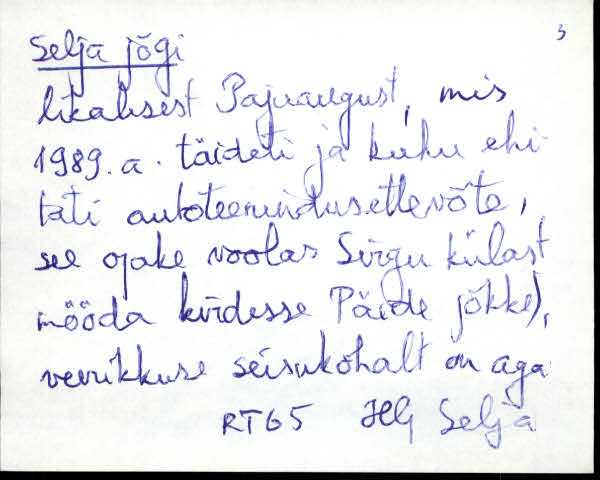 3
Selja jõgi
likahsest Pajuaugust, mis
1989. a. täideti ja kuhu ehi-
tati autoteenindusettevõte,
see ojake voolas Sirgu külast
mööda kirdesse Päide jõkke),
veerikkuse seisukohalt on aga
RT65 Selja